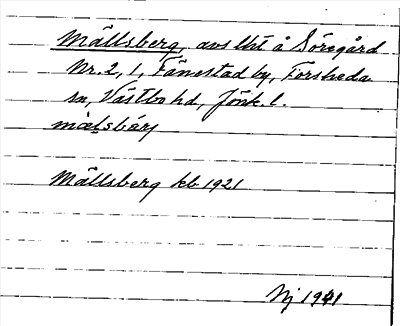 Mållsberg, avs lht å Söregård
Nr. 2, 1, Fånestad by, Forsheda
sn, Västbo hd, Jönk. l.
mɔlsbärj
Mållsberg kb 1921
Nj 1941